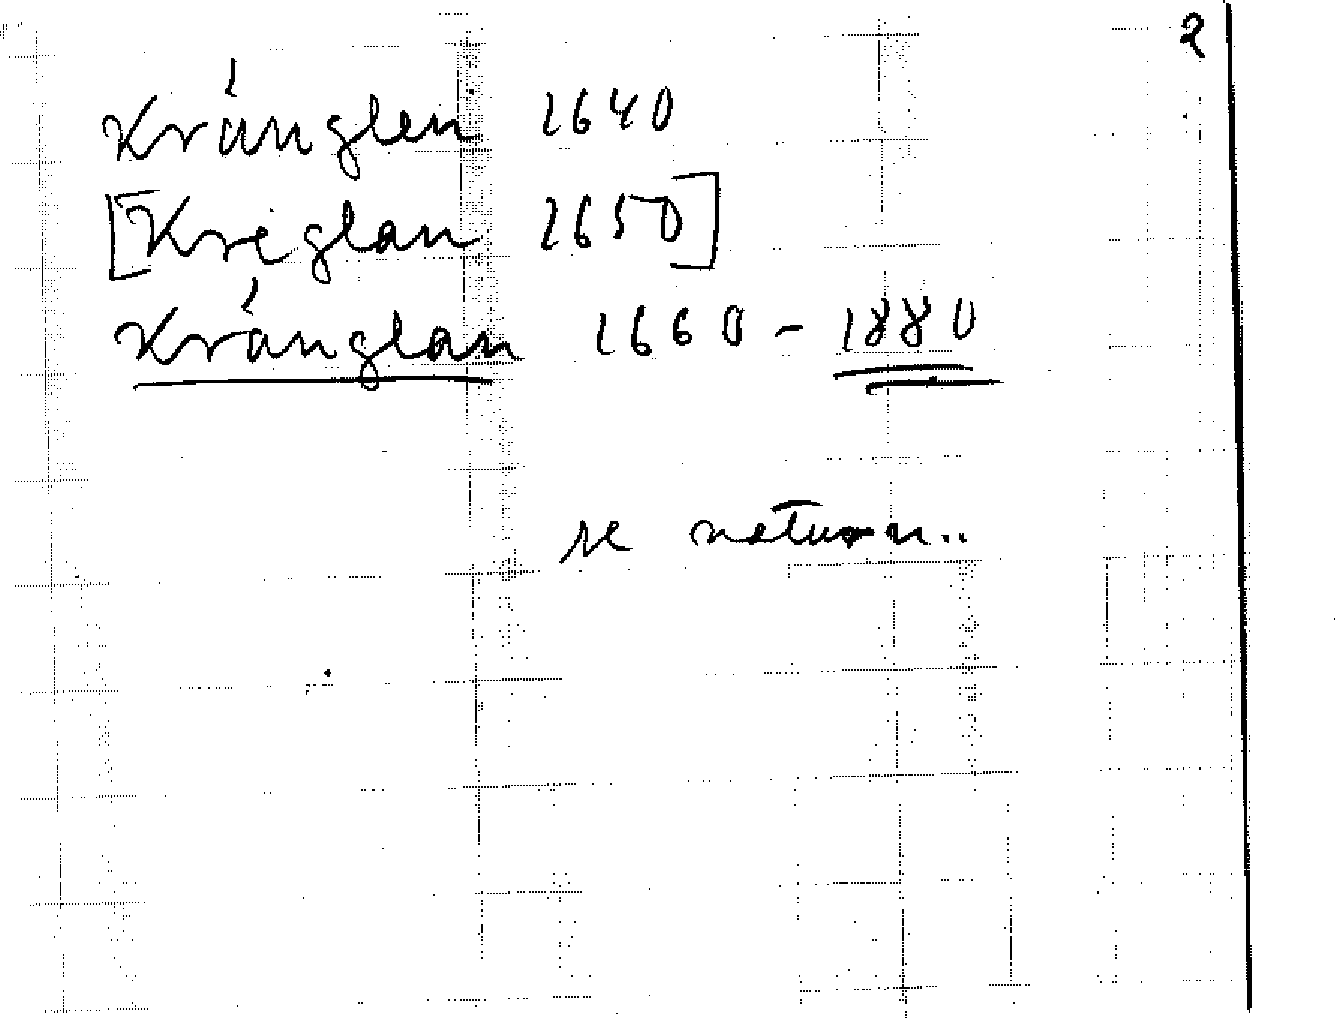 2
Kránglen 1640
[Kreglan 1650]
Kránglan 1660 - 1880
se naturn..